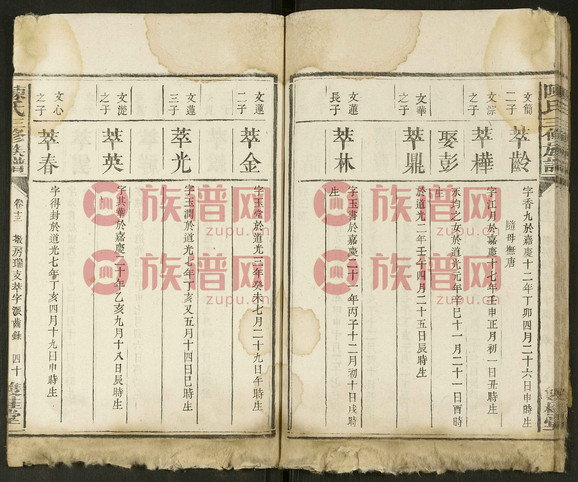 陳氏三修族譜
文簡
二子
萃齡
字香九於嘉慶十二年丁卯四月二十六日申時生
隨母撫唐
文淙
之子
萃樺
字江月於嘉慶十七年壬申正月初一日丑時生
娶彭
永均之女於道光元年辛巳十一月二十一日酉時生
文華
之子
萃鼎
於道光二年壬午四月二十五日辰時生
文蓮
長子
萃林
字玉書於嘉慶二十一年丙子十二月初十日戌時生
文蓮
二子
萃金
字玉堂於道光三年癸未七月二十九日午時生
文蓮
三子
萃光
字玉潤於道光七年丁亥又五月十四日巳時生
之子
萃英
字其華於嘉慶二十年乙亥九月十八日辰時生
文心
之子
萃春
字得封於道光七年丁亥四月十九日申時生
陳氏三修族譜
房瓊支萃字派齒錄
四十
雙桂堂
族谱网
zupu.cn
族谱网
zupu.cn
族谱网
zupu.cn
族谱网
zupu.cn